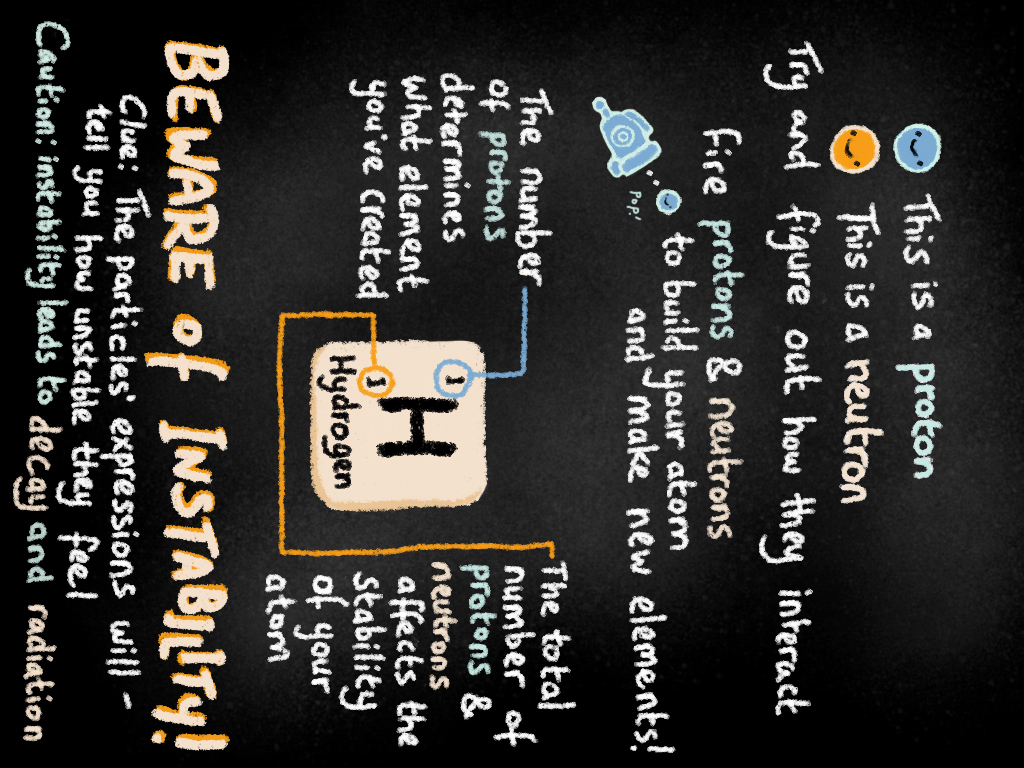 This is a proton
This is a neutron
Try and figure out how they interact
fire protons & neutrons
to build your atom
and make new elements!
Pop!
The number
of protons
determines
what element
you've created
1
H
1
Hydrogen
The total
number of
protons &
neutrons
affects the
stability
of your
atom
BEWARE of INSTABILITY!
Clue: The particles' expressions will -
tell you how unstable they feel
Caution: instability leads to decay and radiation